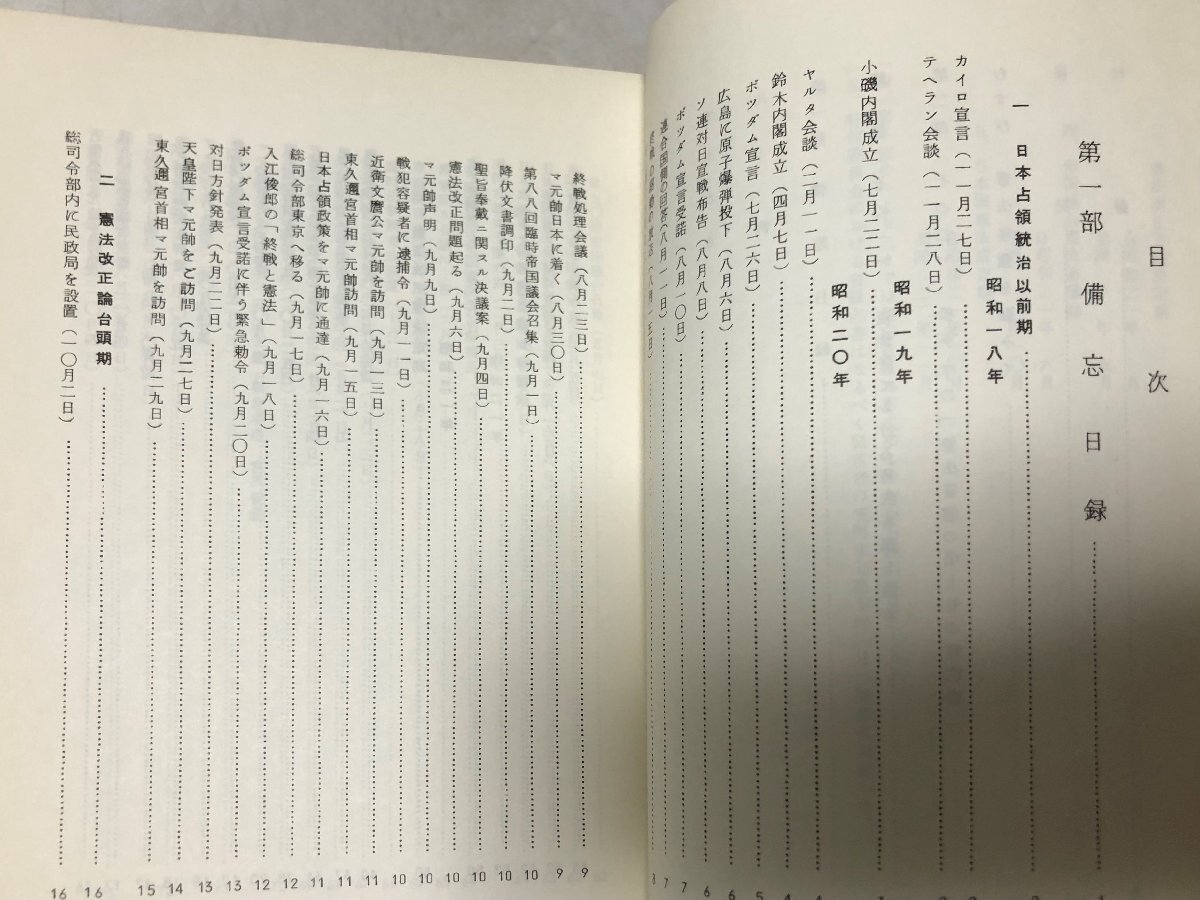 目次
第一部 備忘日録……1
一 日本占領統治以前期……
昭和一八年
カイロ宣言（一一月二七日）……
テヘラン会談（一一月二八日）……
昭和一九年
小磯内閣成立（七月二二日）……
昭和二〇年
ヤルタ会談（二月一一日）……4
鈴木内閣成立（四月七日）……4
ポツダム宣言（七月二六日）……5
広島に原子爆弾投下（八月六日）……6
ソ連対日宣戦布告（八月八日）……6
ポツダム宣言受諾（八月一〇日）……7
連合国側の回答（八月一一日）……7
終戦処理会議（八月二三日）……9
マ元帥日本に着く（八月三〇日）……9
第八八回臨時帝国議会召集（九月一日）……10
降伏文書調印（九月二日）……10
聖旨奉戴ニ関スル決議案（九月四日）……10
憲法改正問題起る（九月六日）……10
マ元帥声明（九月九日）……10
戦犯容疑者に逮捕令（九月一一日）……10
近衛文麿公マ元帥を訪問（九月一三日）……11
東久邇宮首相マ元帥訪問（九月一五日）……11
日本占領政策をマ元帥に通達（九月一六日）……11
総司令部東京へ移る（九月一七日）……12
入江俊郎の「終戦と憲法」（九月一八日）……12
ポツダム宣言受諾に伴う緊急勅令（九月二〇日）……13
対日方針発表（九月二二日）……13
天皇陛下マ元帥をご訪問（九月二七日）……14
東久邇宮首相マ元帥を訪問（九月二九日）……15
二 憲法改正論台頭期……16
総司令部内に民政局を設置（一〇月二日）……16